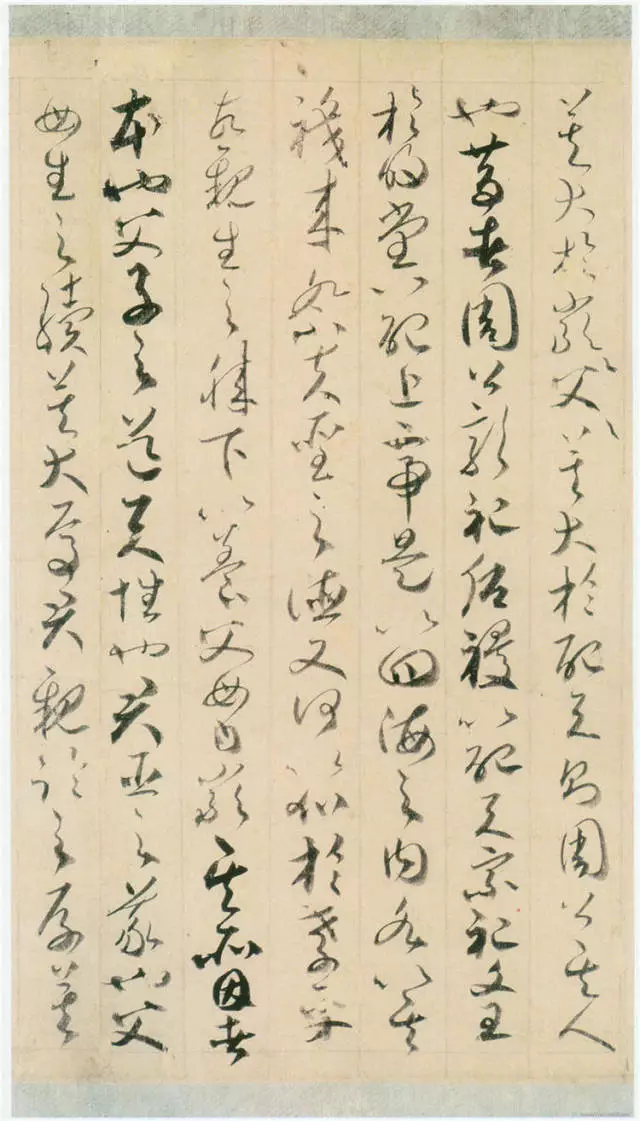 莫大於嚴〻父〻莫大於配天則周公其人
也昔者周公郊祀后稷以配天宗祀文王
於明堂以配上帝是以四海之内各以其
職来祭夫聖之德又何以加於孝乎
故親生之膝下以養父母日嚴其所因者
本也父子之道天性也君臣之義也父
母生之續莫大焉君親臨之厚莫